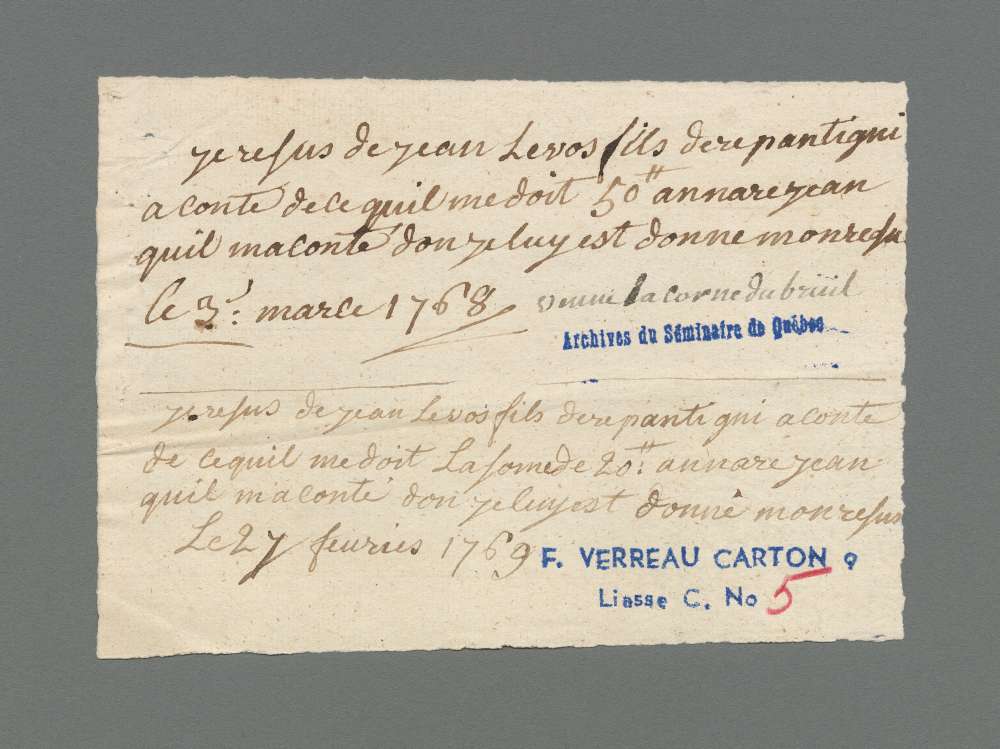 yeresus de yean Levos fils derepantigni
a conte dece quil medoit 50tt annareyean
quil maconte don yeluy est donne monresu
le 3e: marce 1768 veuve Lacorne du breüil
Archives du Séminaire de Québec
yeresus de yean Levos fils derepantigni a conte
de cequil medoit La somede 20tt annareyean
quil maconté don yeluy est donné monresus
Le 27 feuries 1769
F. VERREAU CARTON 9
Liasse C. No 5